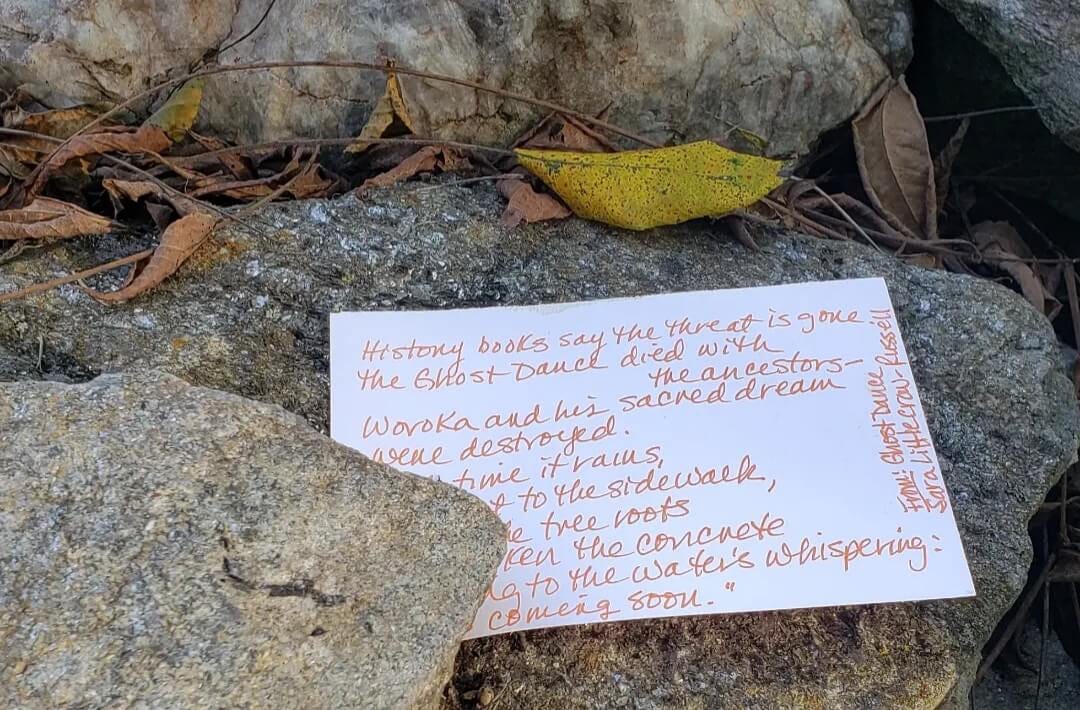 History books say the threat is gone.
The Ghost Dance died with
the ancestors—
Wovoka and his sacred dream
were destroyed.
time it rains,
to the sidewalk,
tree roots
the concrete
to the water's whispering:
coming soon."
From: Ghost Dance
Sara Littlecrow-Russell